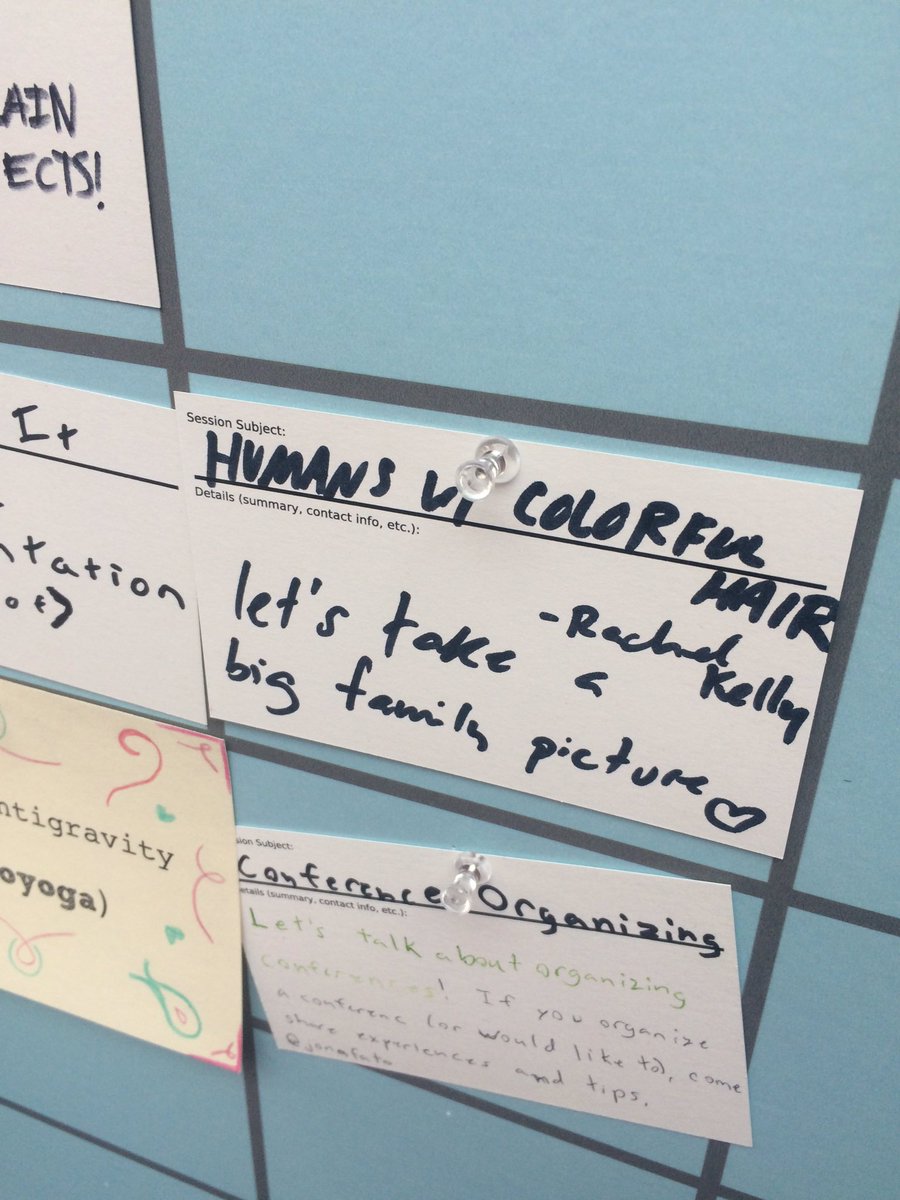 AIN
ECTS!
It
ntation
Session Subject:
HUMANS W/ COLORFUL
HAIR
Details (summary, contact info, etc.):
-Rachel
Kelly
let's take a
big family picture
ntigravity
oyoga)
sion Subject:
Conference Organizing
etails (summary, contact info, etc.):
Let's talk about organizing
conferences! If you organize
a conference (or would like to), come
share experiences and tips.